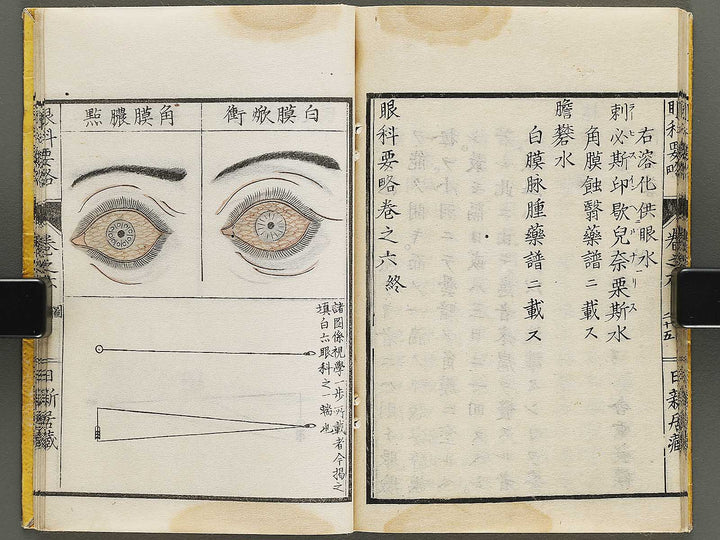 眼科要略
巻之六
二十五
日新居藏
右溶化供眼水
刺必斯印歇兒奈栗斯水
ラーピスインヘルナーリス
角膜蝕翳藥譜ニ載ス
膽礬水
白膜脉腫藥譜ニ載ス
眼科要略巻之六終
白膜焮衝
角膜膿點
諸圖係視學一步所載者今揭之
塡白亦眼科之一端也
眼科要略
巻之六
圖
日新居藏